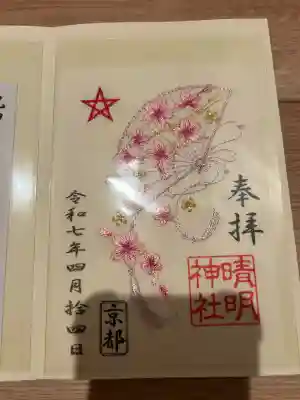 奉拝
晴明
神社
令和七年四月拾四日
京都